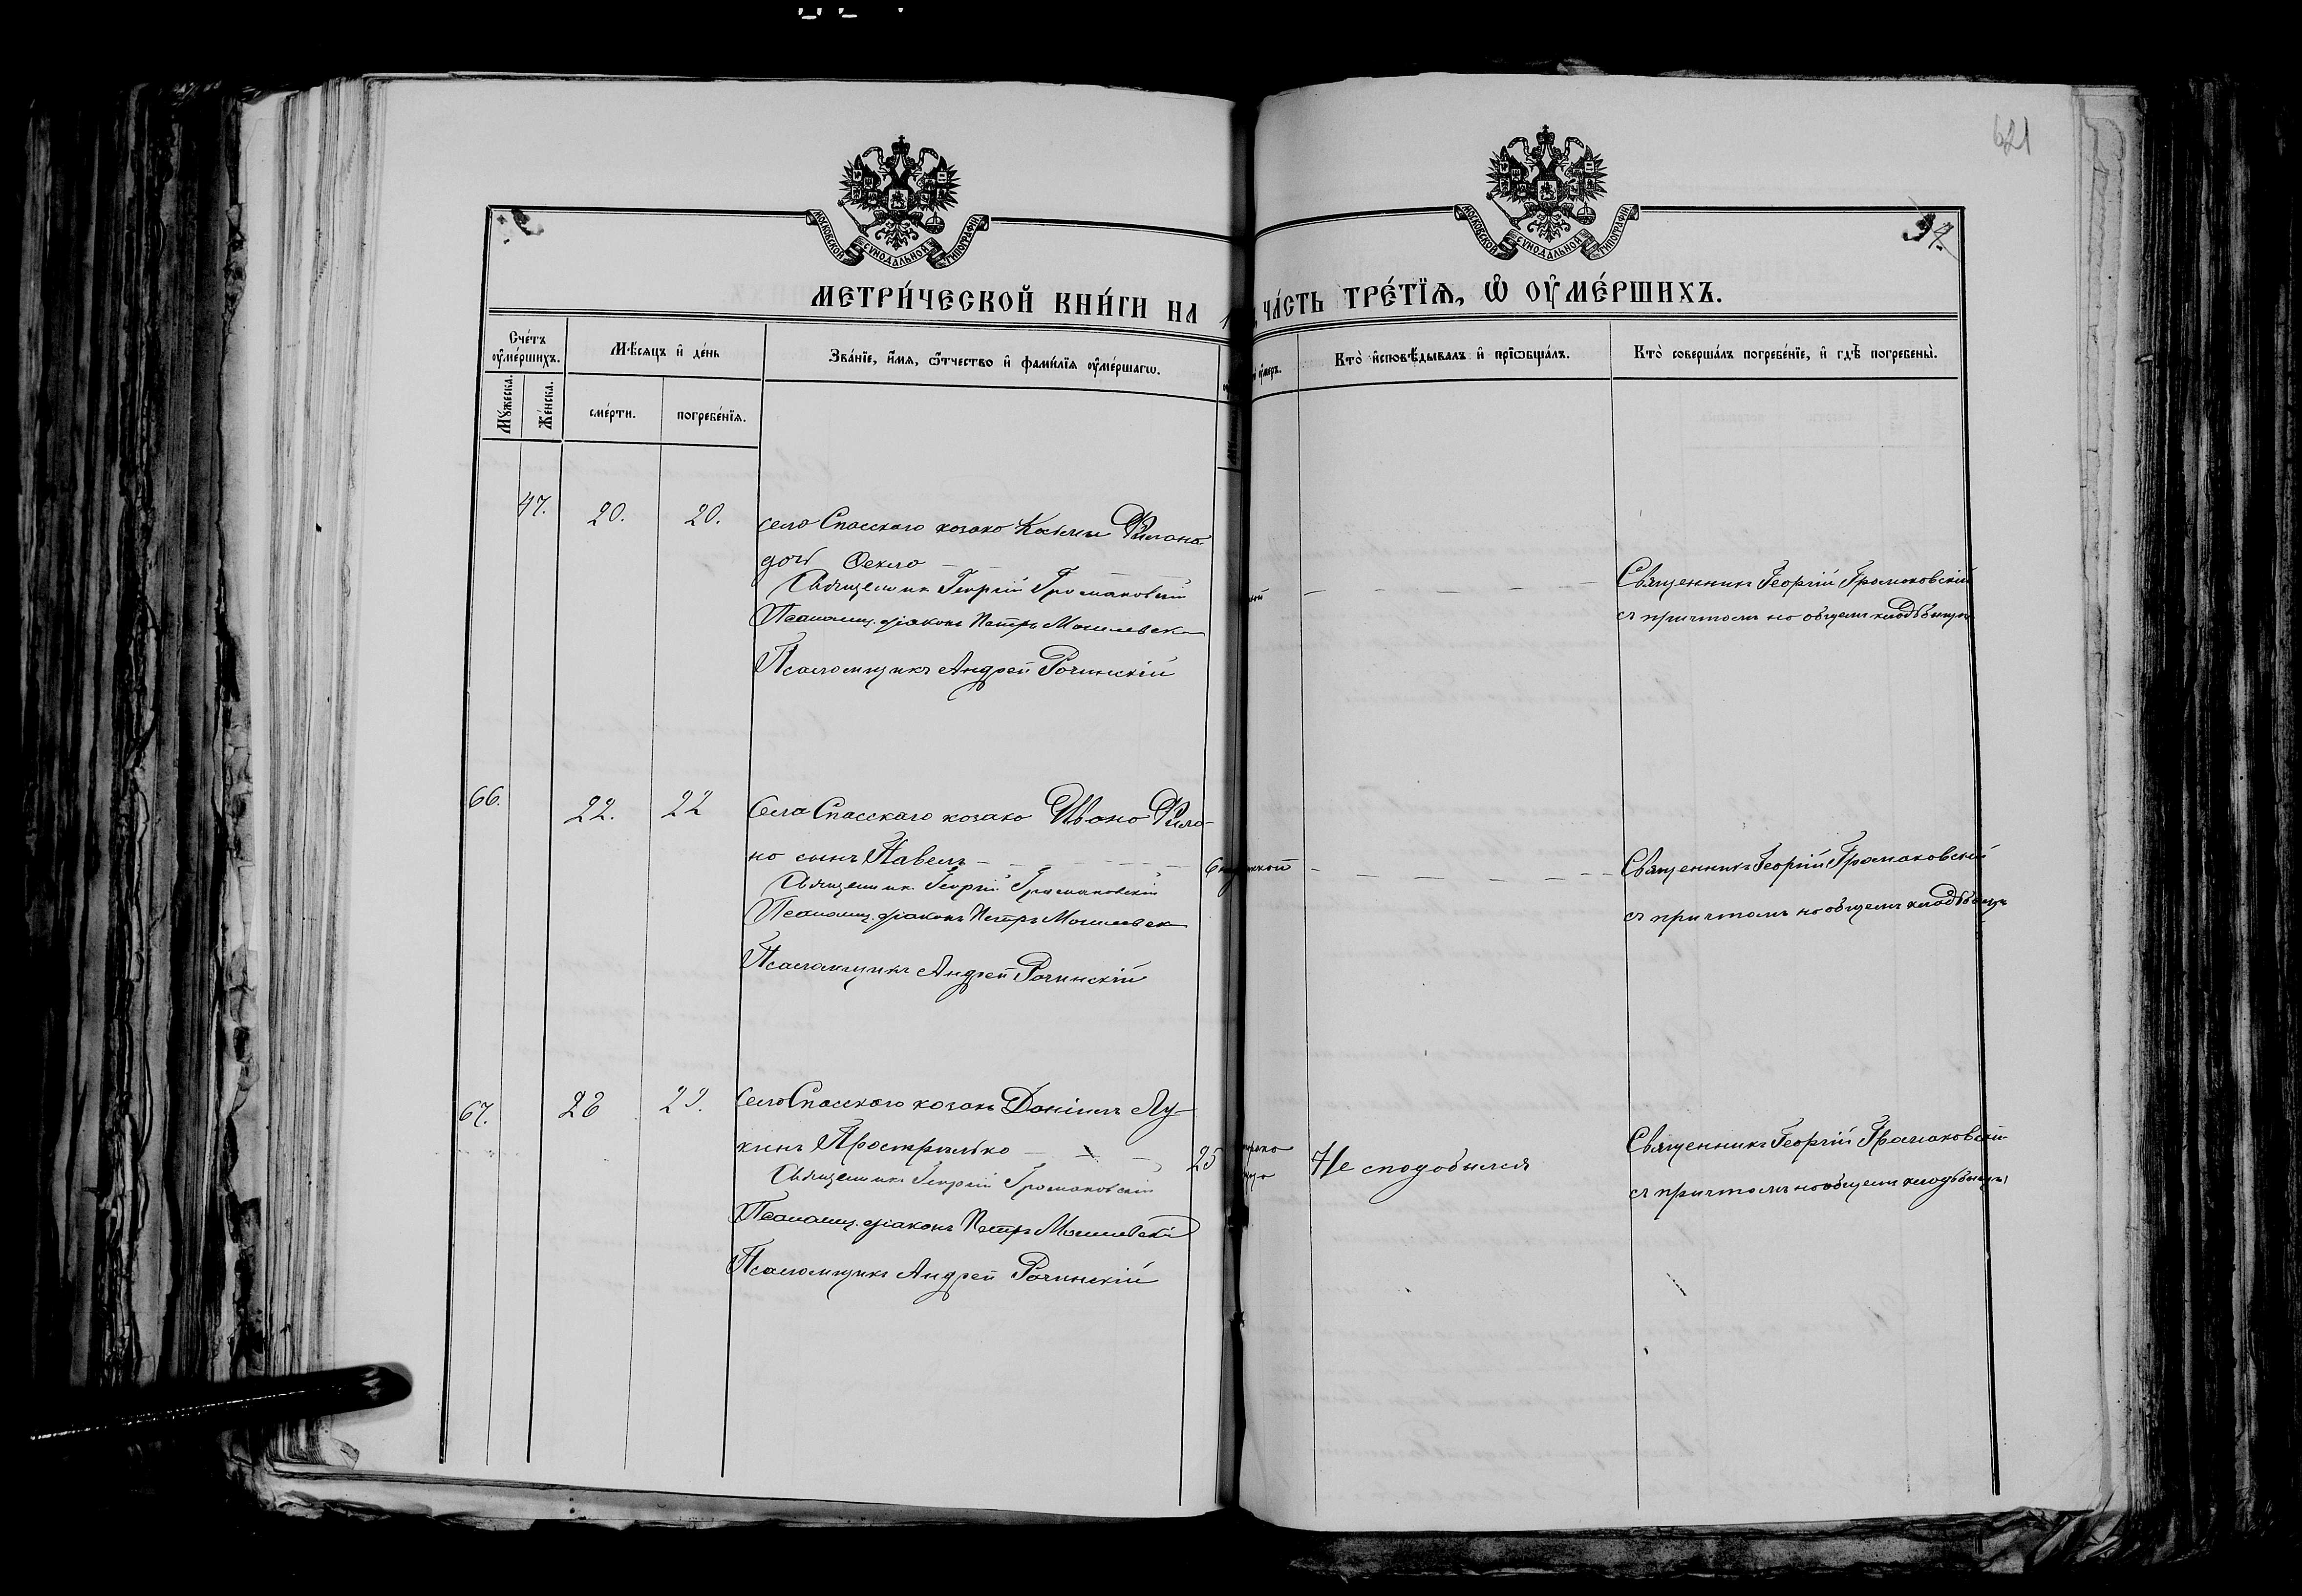 621
34.
МОСКОВСКОЙ СѴНОДАЛЬНОЙ ТИПОГРАФІИ
МОСКОВСКОЙ СѴНОДАЛЬНОЙ ТИПОГРАФІИ
МЕТРИ́ЧЕСКОЙ КНИ́ГИ НА 1
ЧА́СТЬ ТРЕ́ТЇѦ, Ѿ ОУ҆МЕ́РШИХЪ.
Сче́тъ оу҆ме́ршихъ.
Мꙋ́жеска.
Же́нска.
Мѣ́сяцъ и҆ де́нь
сме́рти.
погребе́нїѧ.
Зва́нїе, и҆́мѧ, ѻ҆́тчество и҆ фами́лїѧ оу҆ме́ршагѡ.
Кто̀ и҆сповѣ́дывалъ и҆ прїѡбща́лъ.
Кто̀ соверша́лъ погребе́нїе, и҆ гдѣ̀ погребены̀.
47.
20.
20.
села Спасскаго козака Косьмы Филона
дочь Ѳекла
Священникъ Георгій Громаковскій
Псаломщ. діаконъ Петръ Могилевск
Псаломщикъ Андрей Рочинскій
Священникъ Георгій Громаковскій
съ причтомъ на общемъ кладбищѣ
66.
22.
22
Села Спасскаго козака Ивана Фило-
на сынъ Павелъ
6
Священникъ Георгій Громаковскій
Псаломщ. діаконъ Петръ Могилевск
Псаломщикъ Андрей Рочинскій
Священникъ Георгій Громаковскій
съ причтомъ на общемъ кладбищѣ
67.
28
29.
Села Спасскаго козакъ Даніилъ Лу-
кинъ Прострѣлько
25
Священникъ Георгій Громаковскій
Псаломщ. діаконъ Петръ Могилевскій
Псаломщикъ Андрей Рочинскій
Не сподобился
Священникъ Георгій Громаковскій
съ причтомъ на общемъ кладбищѣ